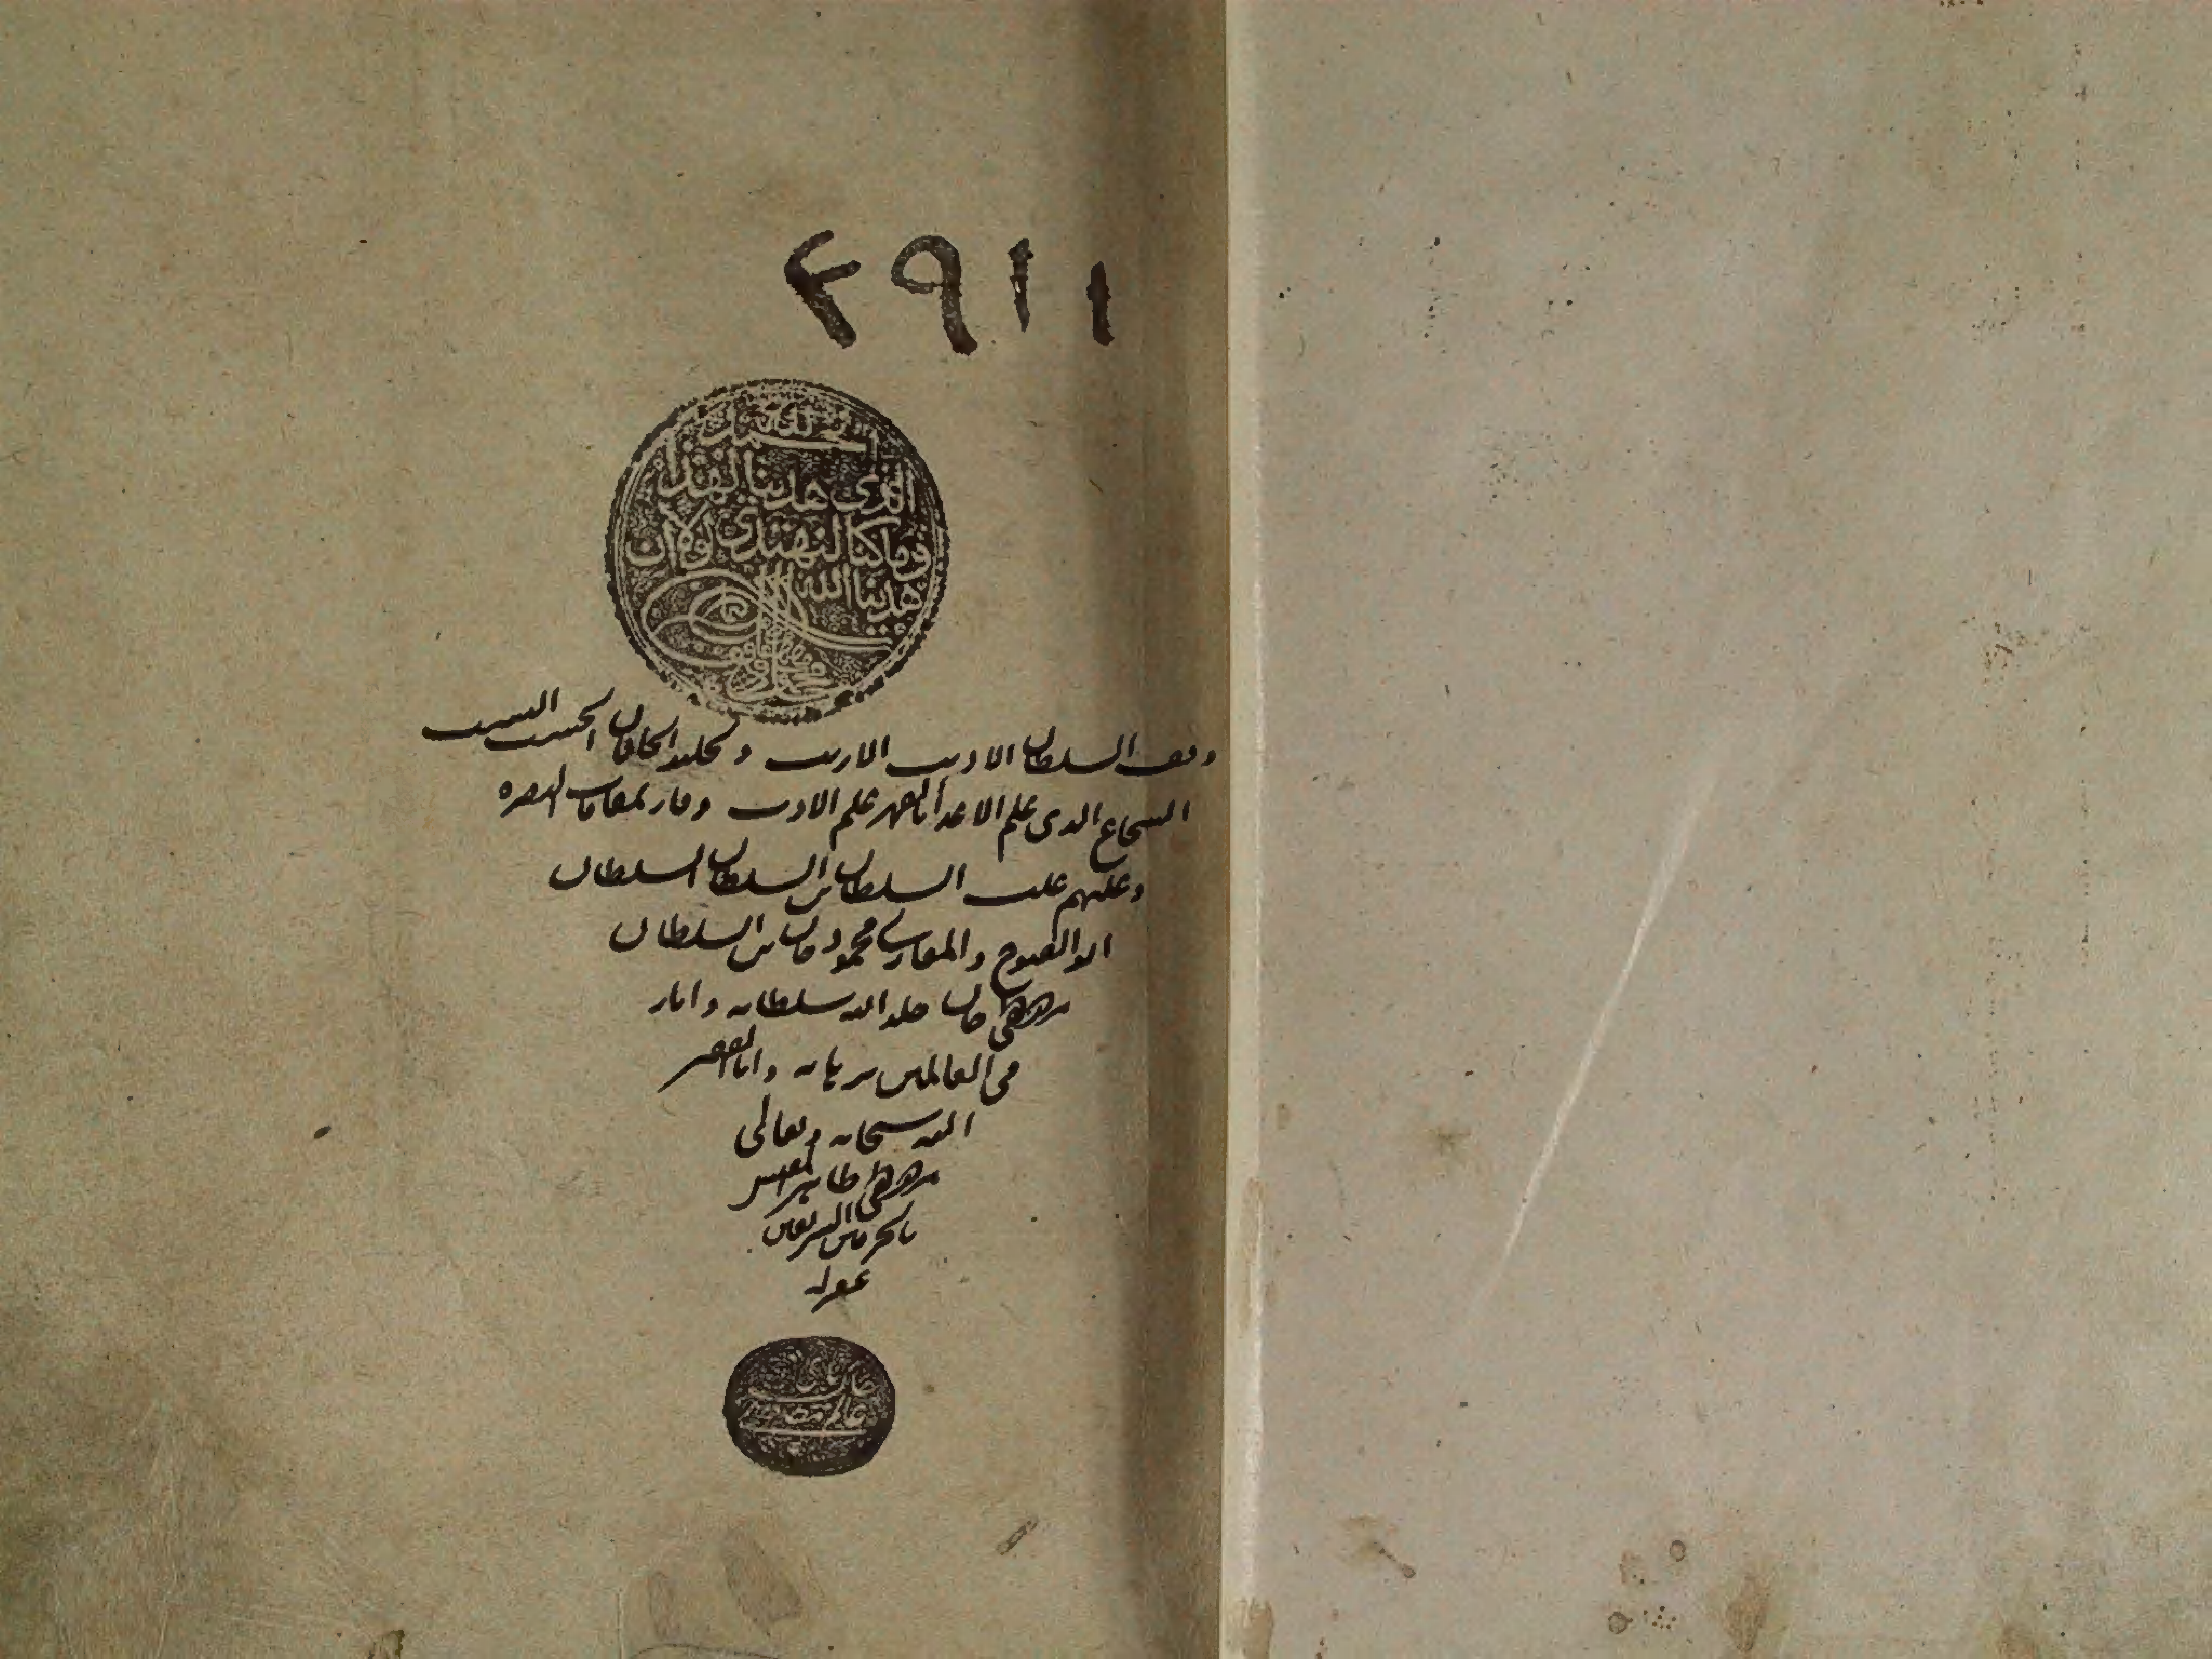 ٤٩١١
الحمد لله
الذى هدينا لهذا
وما كنا لنهتدى لولا ان
هدينا الله
وقف السلطان الاديب الاريب و الخاقان الحسيب النسيب
الشجاع الذى علم الاعدا بالقهر علم الادب وفاز بمقامات النصره
وعليهم غلب السلطان بن السلطان السلطان
ابو الفتوح والمغازى محمود خان بن السلطان
مصطفى خان خلد الله سلطانه و انار
فى العالمين برهانه وانا الفقير
الله سبحانه وتعالى
مصطفى طاهر المفتش
بالحرمين الشريفين
غفر له